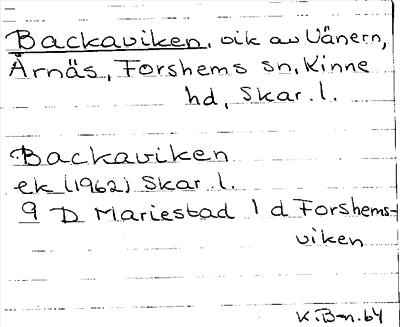 Backaviken, vik av Vänern,
Årnäs, Forshems sn, Kinne
hd, Skar. l.
Backaviken
ek (1962) Skar. l.
9 D Mariestad 1 d Forshems-
viken
K.B-n. 64